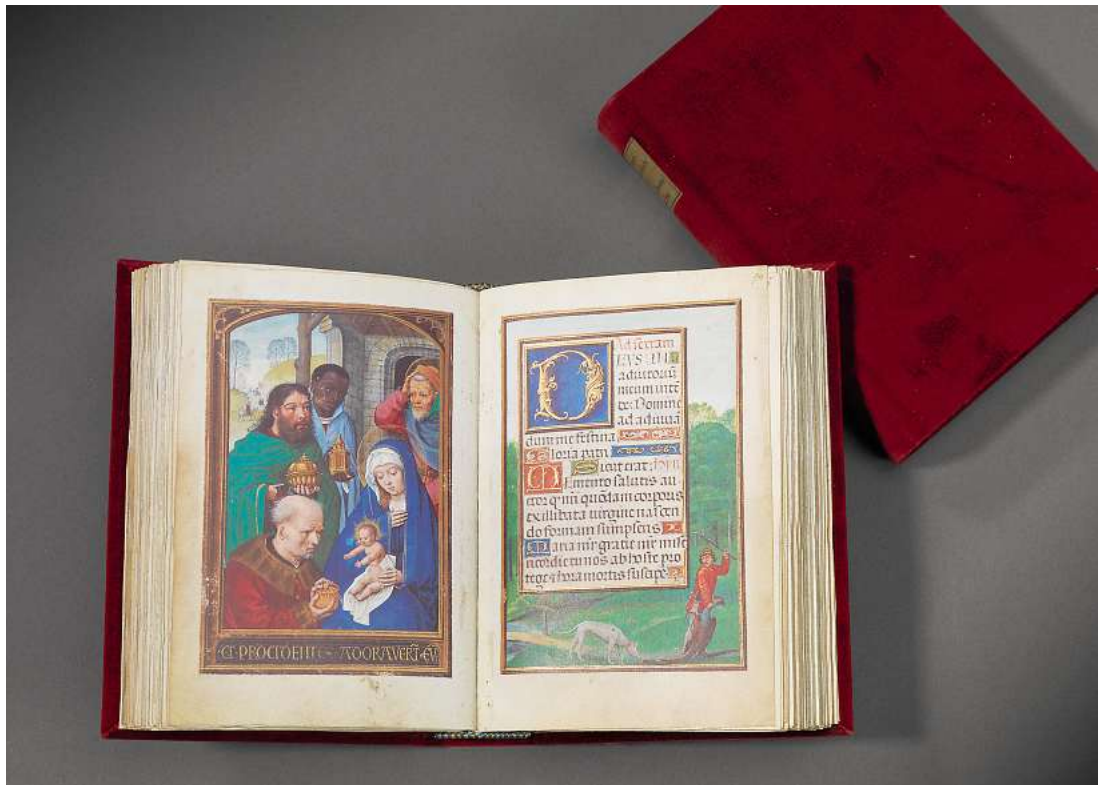 ET · PROCIDENTES · ADORAVERṪ · EV̄
Ad sextam
EVS IN
adiutoriū
meum inte
de: Domine
ad adiuuā
dum me festina
Gloria patri
Sicut erat
Memento salutis au
ctor q nrī quōdam corporis
ex illibata uirgine nascen
do formam sumpseris
Maria mr̄ gratie mr̄ mise
ricordie tu nos ab hoste pro
tege & hora mortis suscipe